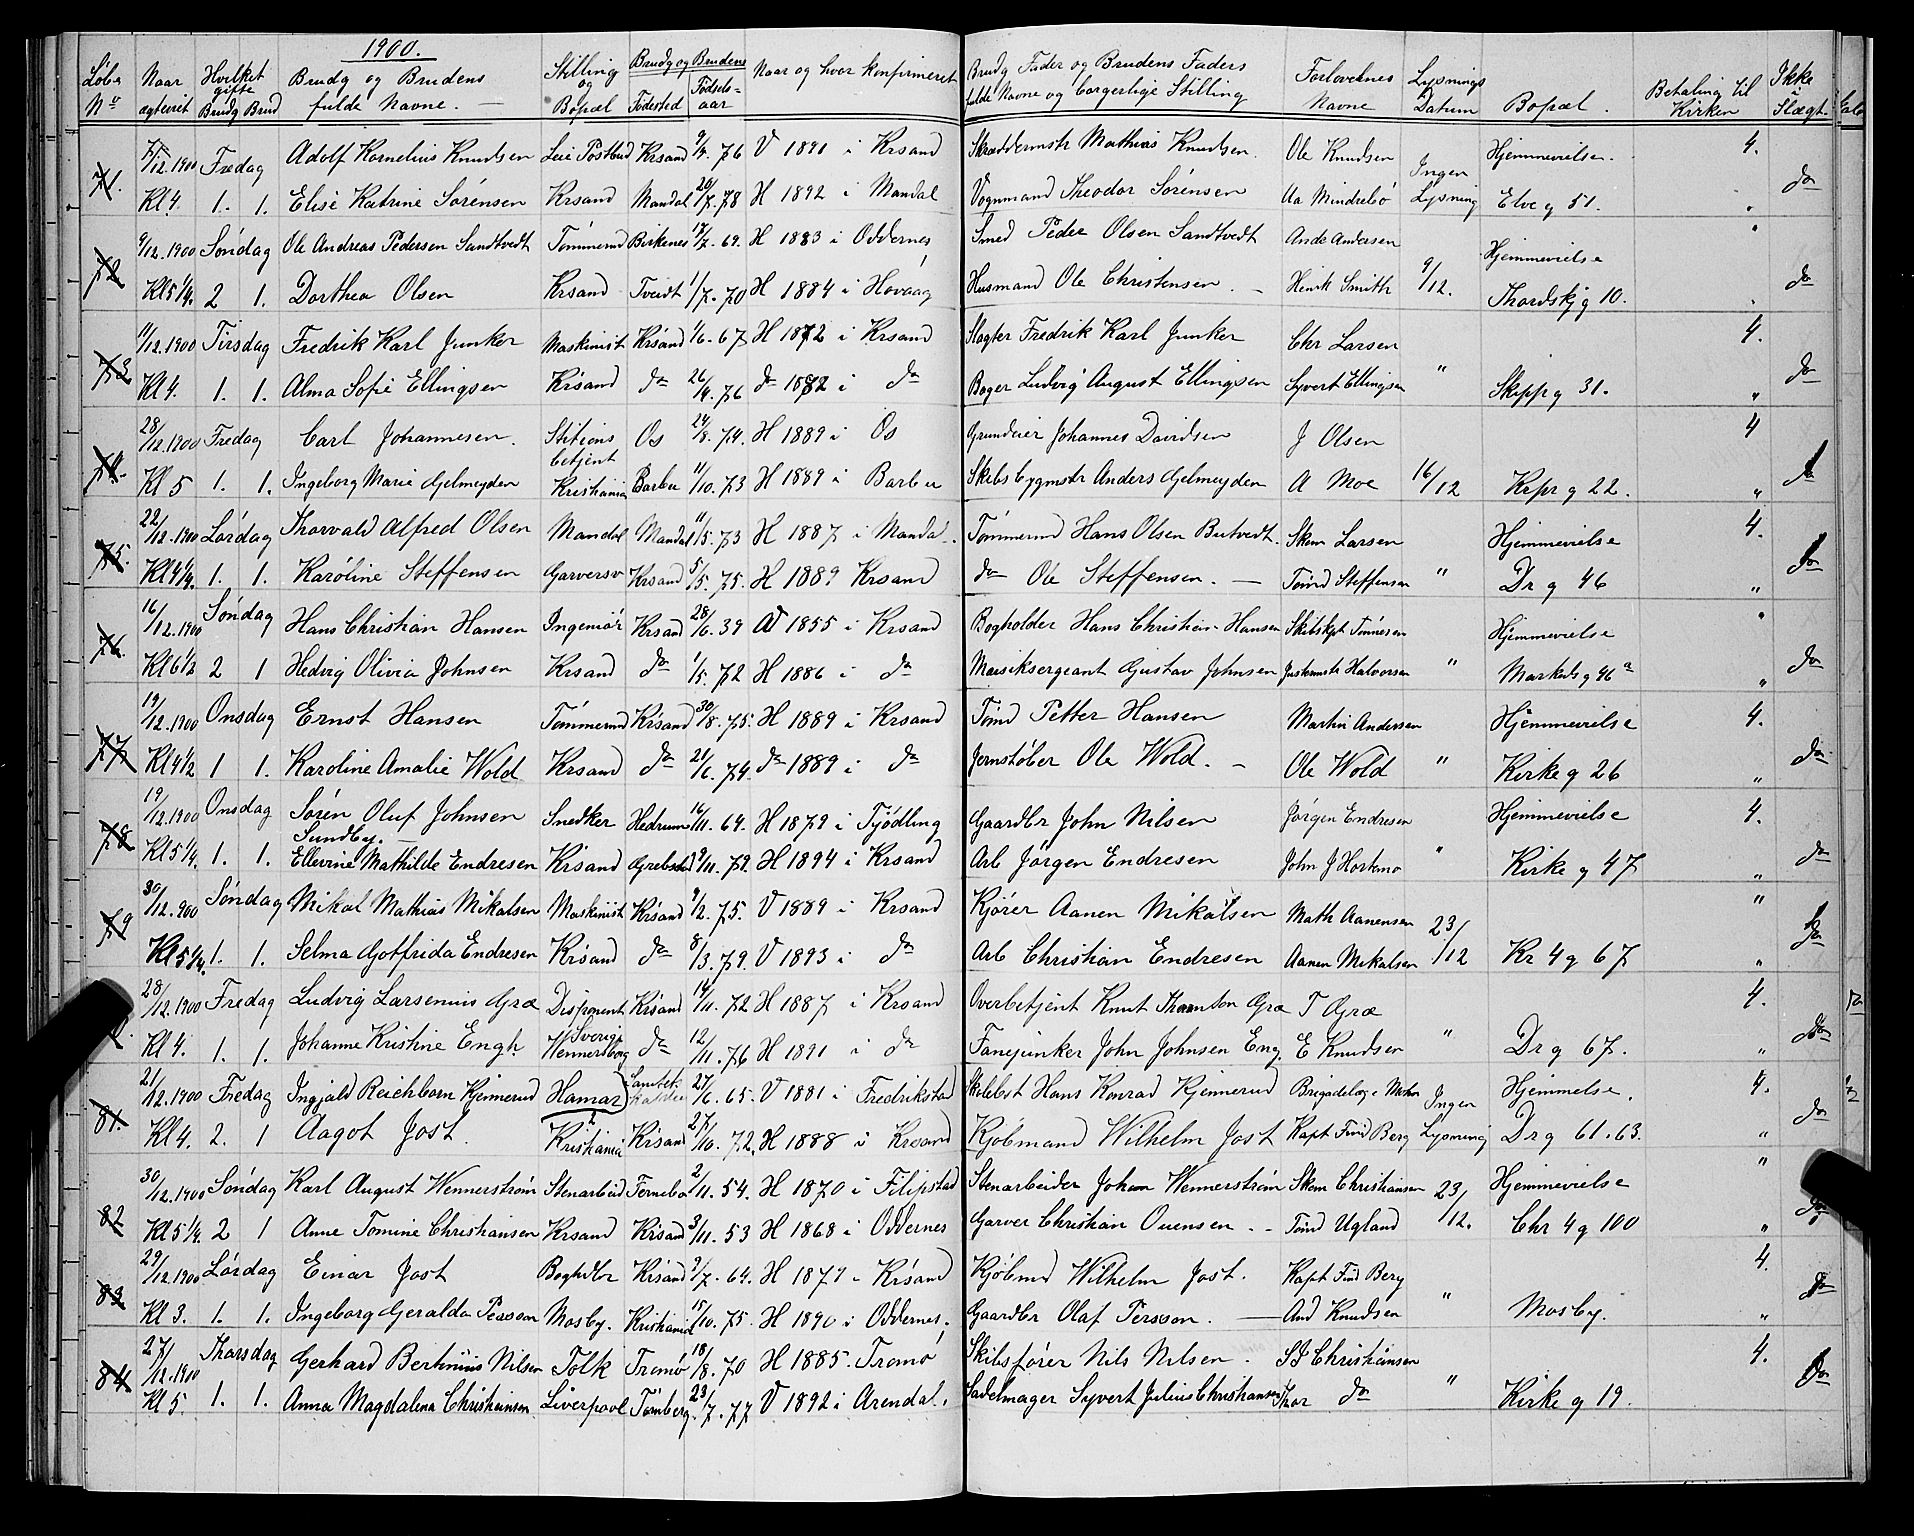 1900.
Løbe No | Naar ægteviet | Hvilket gifte Brudg Brud | Brudg og Brudens fulde Navne. — | Stilling og Bopæl | Brudg og Brudens Fødested | Fødsels-aar | Naar og hvor konfirmeret | Brudg Fader og Brudens Faders fulde Navne og borgerlige Stilling | Forlovernes Navne | Lysnings Datum | Bopæl. | Betaling til Kirken | Ikke i Slægt.
71. 7/12.1900 Fredag Adolf Kornelius Knudsen Postbud Krsand 9/9.76 V 1891 i Krsand Skræddermstr Mathias Knudsen. Ole Knudsen Ingen Hjemmevielse. 4.
Kl 4. 1. 1. Elise Katrine Sørensen Krsand Mandal 20/7.78 H 1892 i Mandal Vognmand Theodor Sørensen Aa Mindrebø Lysning Elve g 51. " do
72 9/12.1900 Søndag Ole Andreas Pedersen Sandtvedt Tømmermd Birkenes 17/7.69. H 1883 i Oddernes Smed Peder Olsen Sandtvedt Ande Andersen Hjemmevielse "
Kl 5 1/4. 2 1. Dorthea Olsen Krsand Tveidt 1/7.70 H 1884 i Høvaag Husmand Ole Christensen. — Henrik Smith 9/12. Thordskj g 10. do
73 11/12.1900 Tirsdag Fredrik Karl Junker Maskinist Krsand 1/6.67 H 1872 i Krsand Slagter Fredrik Karl Junker Chr Larsen 4.
Kl 4. 1. 1. Alma Sofie Ellingsen Krsand do 26/4.76 do 1892 i do Bager Ludvig August Ellingsen Syvert Ellingsen " Skipp g 31. " do
74. 28/12.1900 Fredag Carl Johannesen. Stations betjent Os 24/8.74. H 1889 i Os Grundeier Johannes Davidsen J Olsen 4
Kl 5 1. 1. Ingeborg Marie Gjelmeyden Kristiania Barbu 11/10.73 H 1889 i Barbu Skibsbygmstr Anders Gjelmeyden A Moe 16/12 Krpr g 22. " do
75. 22/12.1900 Lørdag Thorvald Alfred Olsen Mandal Mandal 11/5.73 H 1887 i Mandal. Tømmermd Hans Olsen Butvedt. Skom Larsen Hjemmevielse 4.
Kl 4 1/4. 1. 1. Karoline Steffensen Garversv Krsand 5/5.75. H 1889 Krsand do Ole Steffensen. — Tømd Steffensen " Dr g 46 " do
76. 16/12.1900 Søndag Hans Christian Hansen Ingeniør Krsand 28/6.39 V 1855 i Krsand Bogholder Hans Christian Hansen Skibskpt Tønnesen Hjemmevielse "
Kl 6 1/2 2 1 Hedvig Olivia Johnsen Krsand do 1/5.72 H 1886 i do Musiksergeant Gustav Johnsen Halvorsen " Markeds g 46 a " do
77 19/12.1900 Onsdag Ernst Hansen Tømmermd Krsand 30/8.75. H 1889 i Krsand Tømd Petter Hansen Martin Andersen Hjemmevielse 4.
Kl 4 1/2 1 1. Karoline Amalie Wold Krsand do 21/6.74. do 1889 i do Jernstøber Ole Wold. — Ole Wold " Kirke g 26 " do
78 19/12.1900 Onsdag Søren Oluf Johnsen Sundby. Snedker Hedrum 16/11.64. H 1879 i Tjødling Gaardbr John Nilsen Jørgen Endresen Hjemmevielse 4.
Kl 5 1/4. 1. 1. Ellevine Mathilde Endresen Krsand Grebstad 9/11.79. H 1894 i Krsand Arb Jørgen Endresen John J Horkmo " Kirke g 47 " do
79 30/12.900 Søndag Mikal Mathias Mikalsen Maskinist Krsand 9/2.75. V 1889 i Krsand Kjører Aanen Mikalsen Math Aanensen 23/12 "
Kl 5 1/4. 1. 1. Selma Gotfrida Endresen Krsand do 8/3.79. V 1893 i do Arb Christian Endresen Aanen Mikalsen Kr 4 g 67 " do
28/12.1900 Fredag Ludvig Larsenius Græ Disponent Krsand 14/11.72 H 1887 i Krsand Overbetjent Knut Græ T Græ 4.
Kl 4. 1. 1. Johanne Kristine Engh. Sverige Wennersborg do 12/11.76 H 1891 i do Fanejunker John Johnsen Eng. E Knudsen " Dr g 67. " do
81. 21/12.1900 Fredag Ingjald Reichborn Kjennerud Hamar 27/6.65. V 1881 i Fredrikstad Skolebst Hans Konrad Kjennerud Brigadelæge Mohn Ingen Hjemmelse. 4.
Kl 4. 2. 1 Aagot Jost. Kristiania Krsand 27/10.72. H 1888 i Krsand Kjøbmand Wilhelm Jost Kapt Find Berg Lysning Dr g 61.63. " do
82 30/12.1900 Søndag Karl August Wennerstrøm Stenarbeid Fernebo 2/11.54. H 1870 i Filipstad Stenarbeider Johan Wennerstrøm Skom Christiansen 23/12. Hjemmevielse "
Kl 5 1/4. 2 1 Anne Tomine Christiansen Krsand Krsand 3/11.53 H 1868 i Oddernes Garver Christian Ouensen. - Tømd Ugland Chr 4 g 100 " do
83 29/12.1900 Lørdag Einar Jost Boghdlr Krsand 9/7.64. H 1879 i Krsand Kjøbmd Wilhelm Jost. Kapt Find Berg 4.
Kl 3. 1. 1. Ingeborg Geralda Persson Mosby. Kristiania 15/10.75. H 1890 i Oddernes. Gaardbr Olaf Persson. — And Knudsen " Mosby. " do
84 27/12.1900 Thorsdag Gerhard Bertinius Nilsen Tolk Tromø 18/8.70 H 1885. Tromø Skibsfører Nils Nilsen. S J Christiansen 4.
Kl 5. 1. 1. Anna Magdalena Christiansen Liverpool Tønberg 23/7.77 V 1892 i Arendal. Sadelmager Syvert Julius Christiansen Thor do " Kirke g 19. do